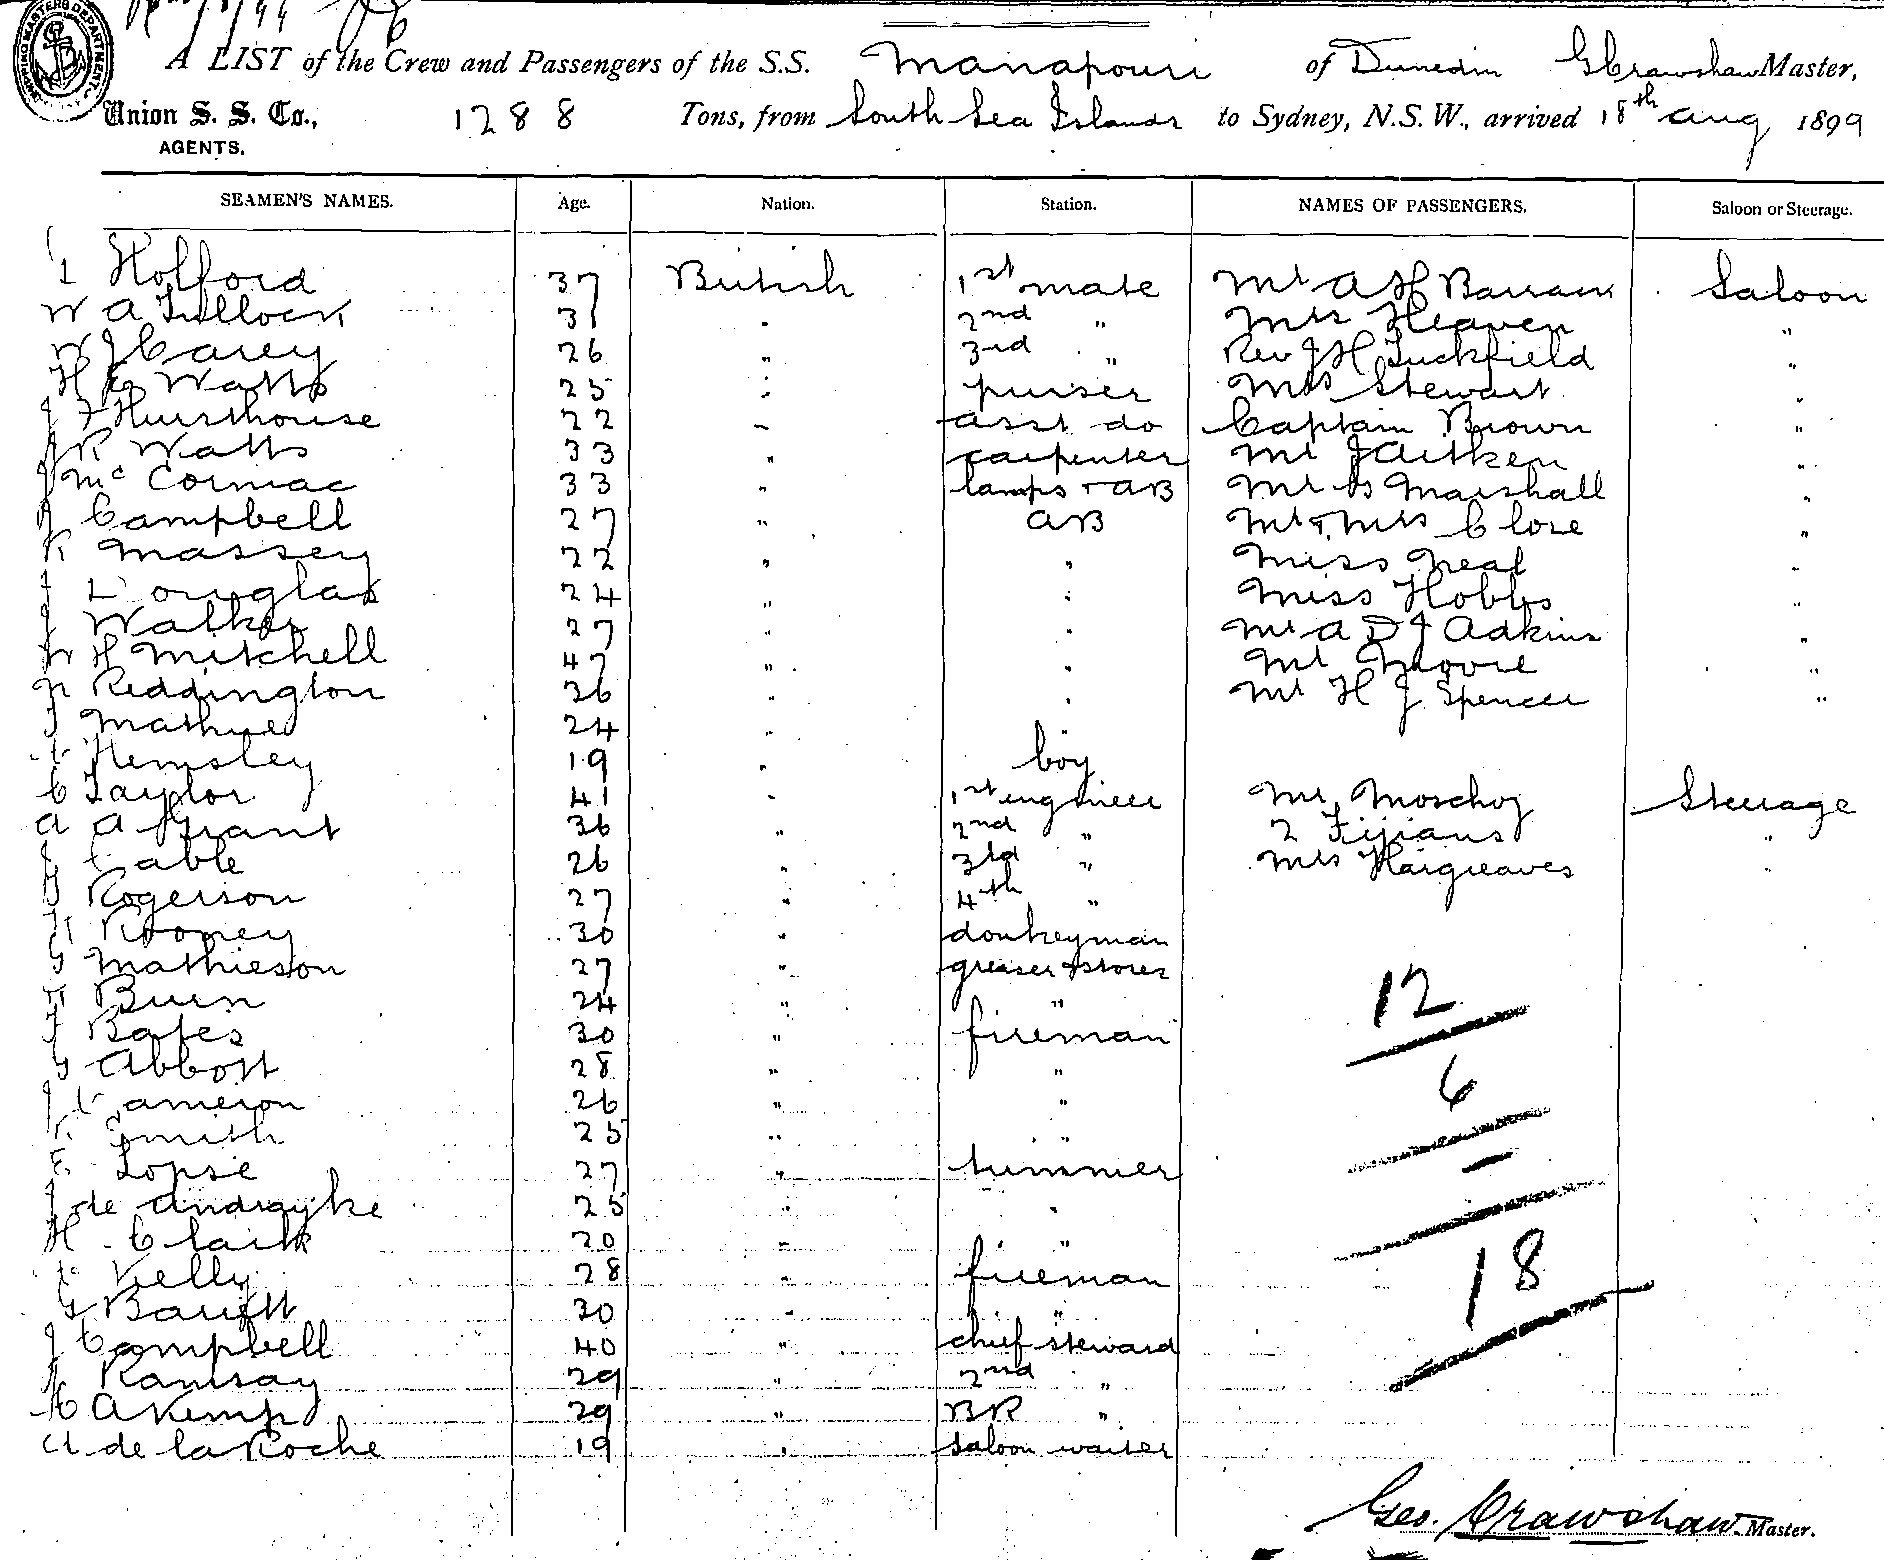 A LIST of the Crew and Passengers of the S.S. Manapouri of Dunedin G Crawshaw Master,
Union S. S. Co., 1288 Tons, from South Sea Islands to Sydney, N.S.W., arrived 18th Aug 1899
AGENTS.
SEAMEN'S NAMES. Age. Nation. Station. NAMES OF PASSENGERS. Saloon or Steerage.
Holford 37 British 1st mate Mr A H Barrack Saloon
W A Tullock 31 " 2nd " Mrs Heaven "
W J Carey 26 " 3rd " Rev J H Tuckfield "
H Watts 25 " purser Mrs Stewart "
J F Hursthouse 22 " asst do Captain Brown "
J R Watts 33 " carpenter Mr J Aitken "
J McCormac 33 " lamps + AB Mr Marshall "
J Campbell 27 " AB Mr & Mrs Close "
K Massey 22 " " Miss Neal "
J Douglas 24 " " Miss Hobbs "
J Walker 27 " " Mr A D J Adkins "
W H Mitchell 47 " " Mr Moore "
N Reddington 36 " " Mr H J Spencer "
J Mathue 24 " "
Hemsley 19 " boy
C Taylor 41 " 1st engineer Mr Moschoz Steerage
A A Grant 36 " 2nd " 2 Fijians "
J Cable 26 " 3rd " Mrs Hargreaves "
Rogerson 27 " 4th "
Rooney 30 " donkeyman
G Mathieson 27 " greaser & stores
Burn 24 " "
J Bates 30 " fireman
G Abbott 28 " "
J Cameron 26 " "
K Smith 25 " "
E Lopse 27 " trimmer
J de Andrayke 25 " "
H Clark 20 " "
Kelly 28 " fireman
G Barrett 30 " "
J Campbell 40 " chief steward
Ramsay 29 " 2nd "
A Kemp 29 " BR "
A de la Roche 19 " saloon waiter
12
6
–
18
Geo. Crawshaw Master.